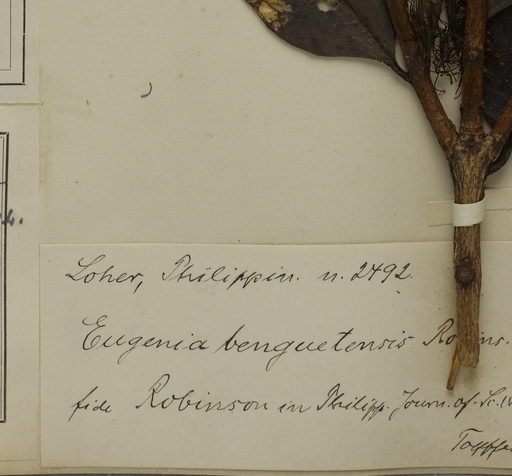 Loher, Philippin. n. 2492.
Eugenia benguetensis Robins.
fide Robinson in Philipp. Journ. of. Sc.